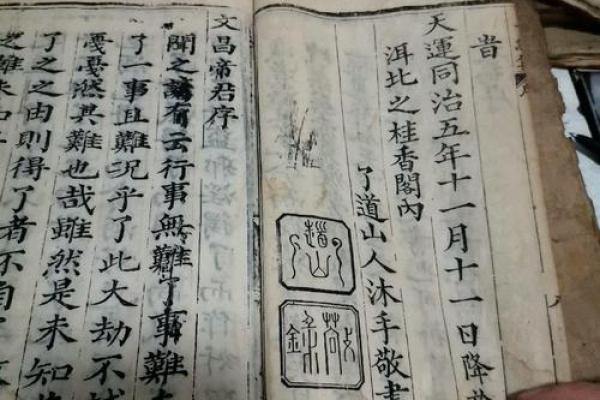 旹
天運同治五年十一月十一日降於
洱北之桂香閣內
了道山人沐手敬書
文昌帝君序
聞之諺有云行事無難了事難
了一事且難況乎了此大劫不
憂憂然其難也哉雖然是未知
了之之由則得了者不自
之難未知